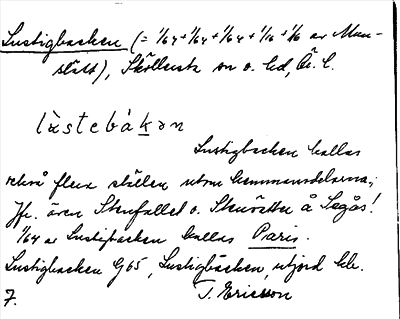 Lustigbacken (= 1/64+1/64+1/64+1/16+1/16 av Mun-
slätt), Sköllersta sn o. hd, Ör. l.
lástebàkɔn
Lustigbacken kallas
också flera ställen utom hemmansdelarna;
Jfr. även Stenfallet o. Stenrätten å Segås!
1/64 av Lustigbacken kallas Paris.
Lustigbacken G65, Lustigbäcken, utjord kb.
7. T. Ericsson